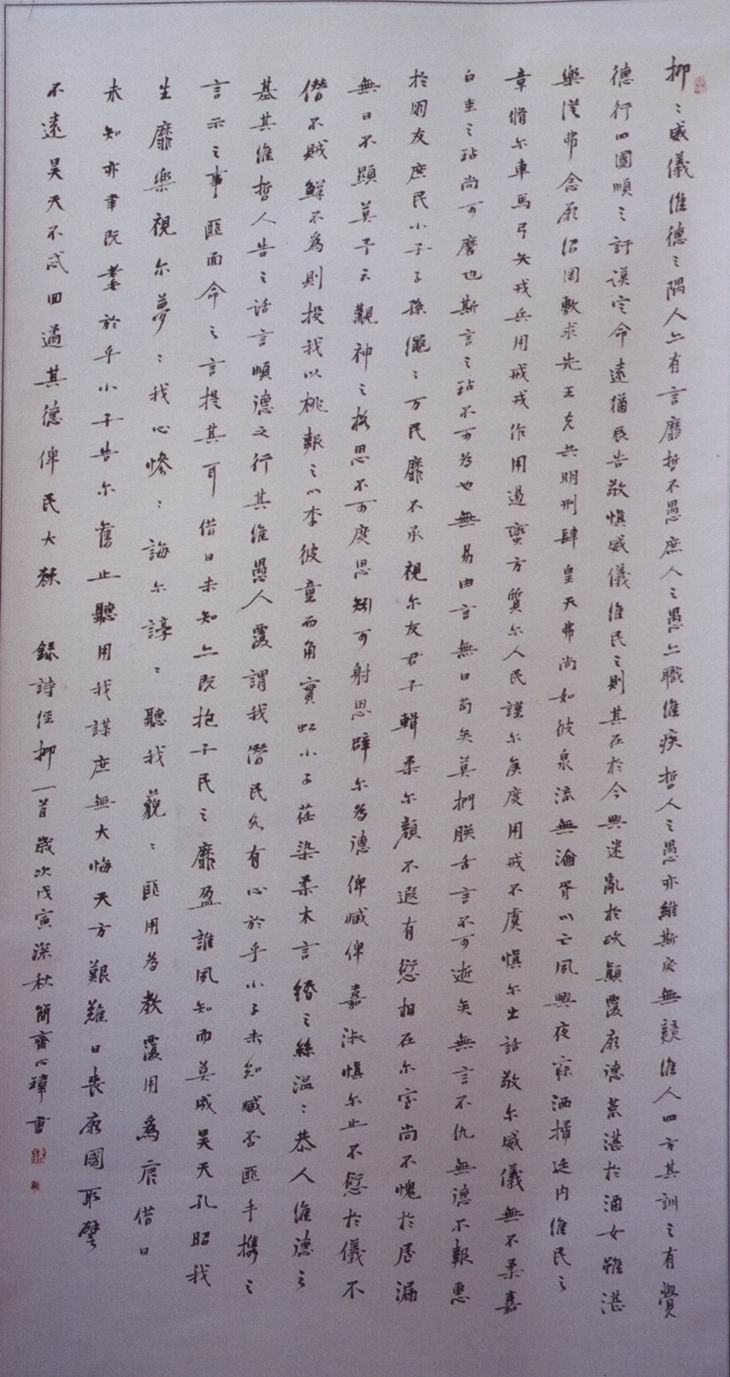 抑〻威儀維德之隅人亦有言靡哲不愚庶人之愚亦職維疾哲人之愚亦維斯戾無競維人四方其訓之有覺
德行四國順之訏謨定命遠猶辰告敬慎威儀維民之則其在於今興迷亂於政顛覆厥德荒湛於酒女雖湛
樂從弗念厥紹罔敷求先王克共明刑肆皇天弗尚如彼泉流無淪胥以亡夙興夜寐洒掃廷內維民之
章脩尔車馬弓矢戎兵用戒戎作用逷蠻方質尔人民謹尔矦度用戒不虞慎尔出話敬尔威儀無不柔嘉
白圭之玷尚可磨也斯言之玷不可為也無易由言無曰苟矣莫捫朕舌言不可逝矣無言不仇無德不報惠
於朋友庶民小子子孫繩〻万民靡不承視尔友君子輯柔尔顏不遐有愆相在尔室尚不愧於屋漏
無曰不顯莫予云觀神之格思不可度思矧可射思辟尔為德俾臧俾嘉淑慎尔止不愆於儀不
僭不賊鮮不為則投我以桃報之以李彼童而角實虹小子荏染柔木言緡之絲溫〻恭人維德之
基其維哲人告之話言順德之行其維愚人覆謂我僭民各有心於乎小子未知臧否匪手攜之
言示之事匪面命之言提其耳借曰未知亦既抱子民之靡盈誰夙知而莫成昊天孔昭我
生靡樂視尔夢〻我心慘〻誨尔諄〻聽我藐〻匪用為教覆用為虐借曰
未知亦聿既耄於乎小子告尔舊止聽用我謀庶無大悔天方艱難曰喪厥國取譬
不遠昊天不忒回遹其德俾民大棘 錄詩經抑一首歲次戊寅深秋簡齋心瑋書